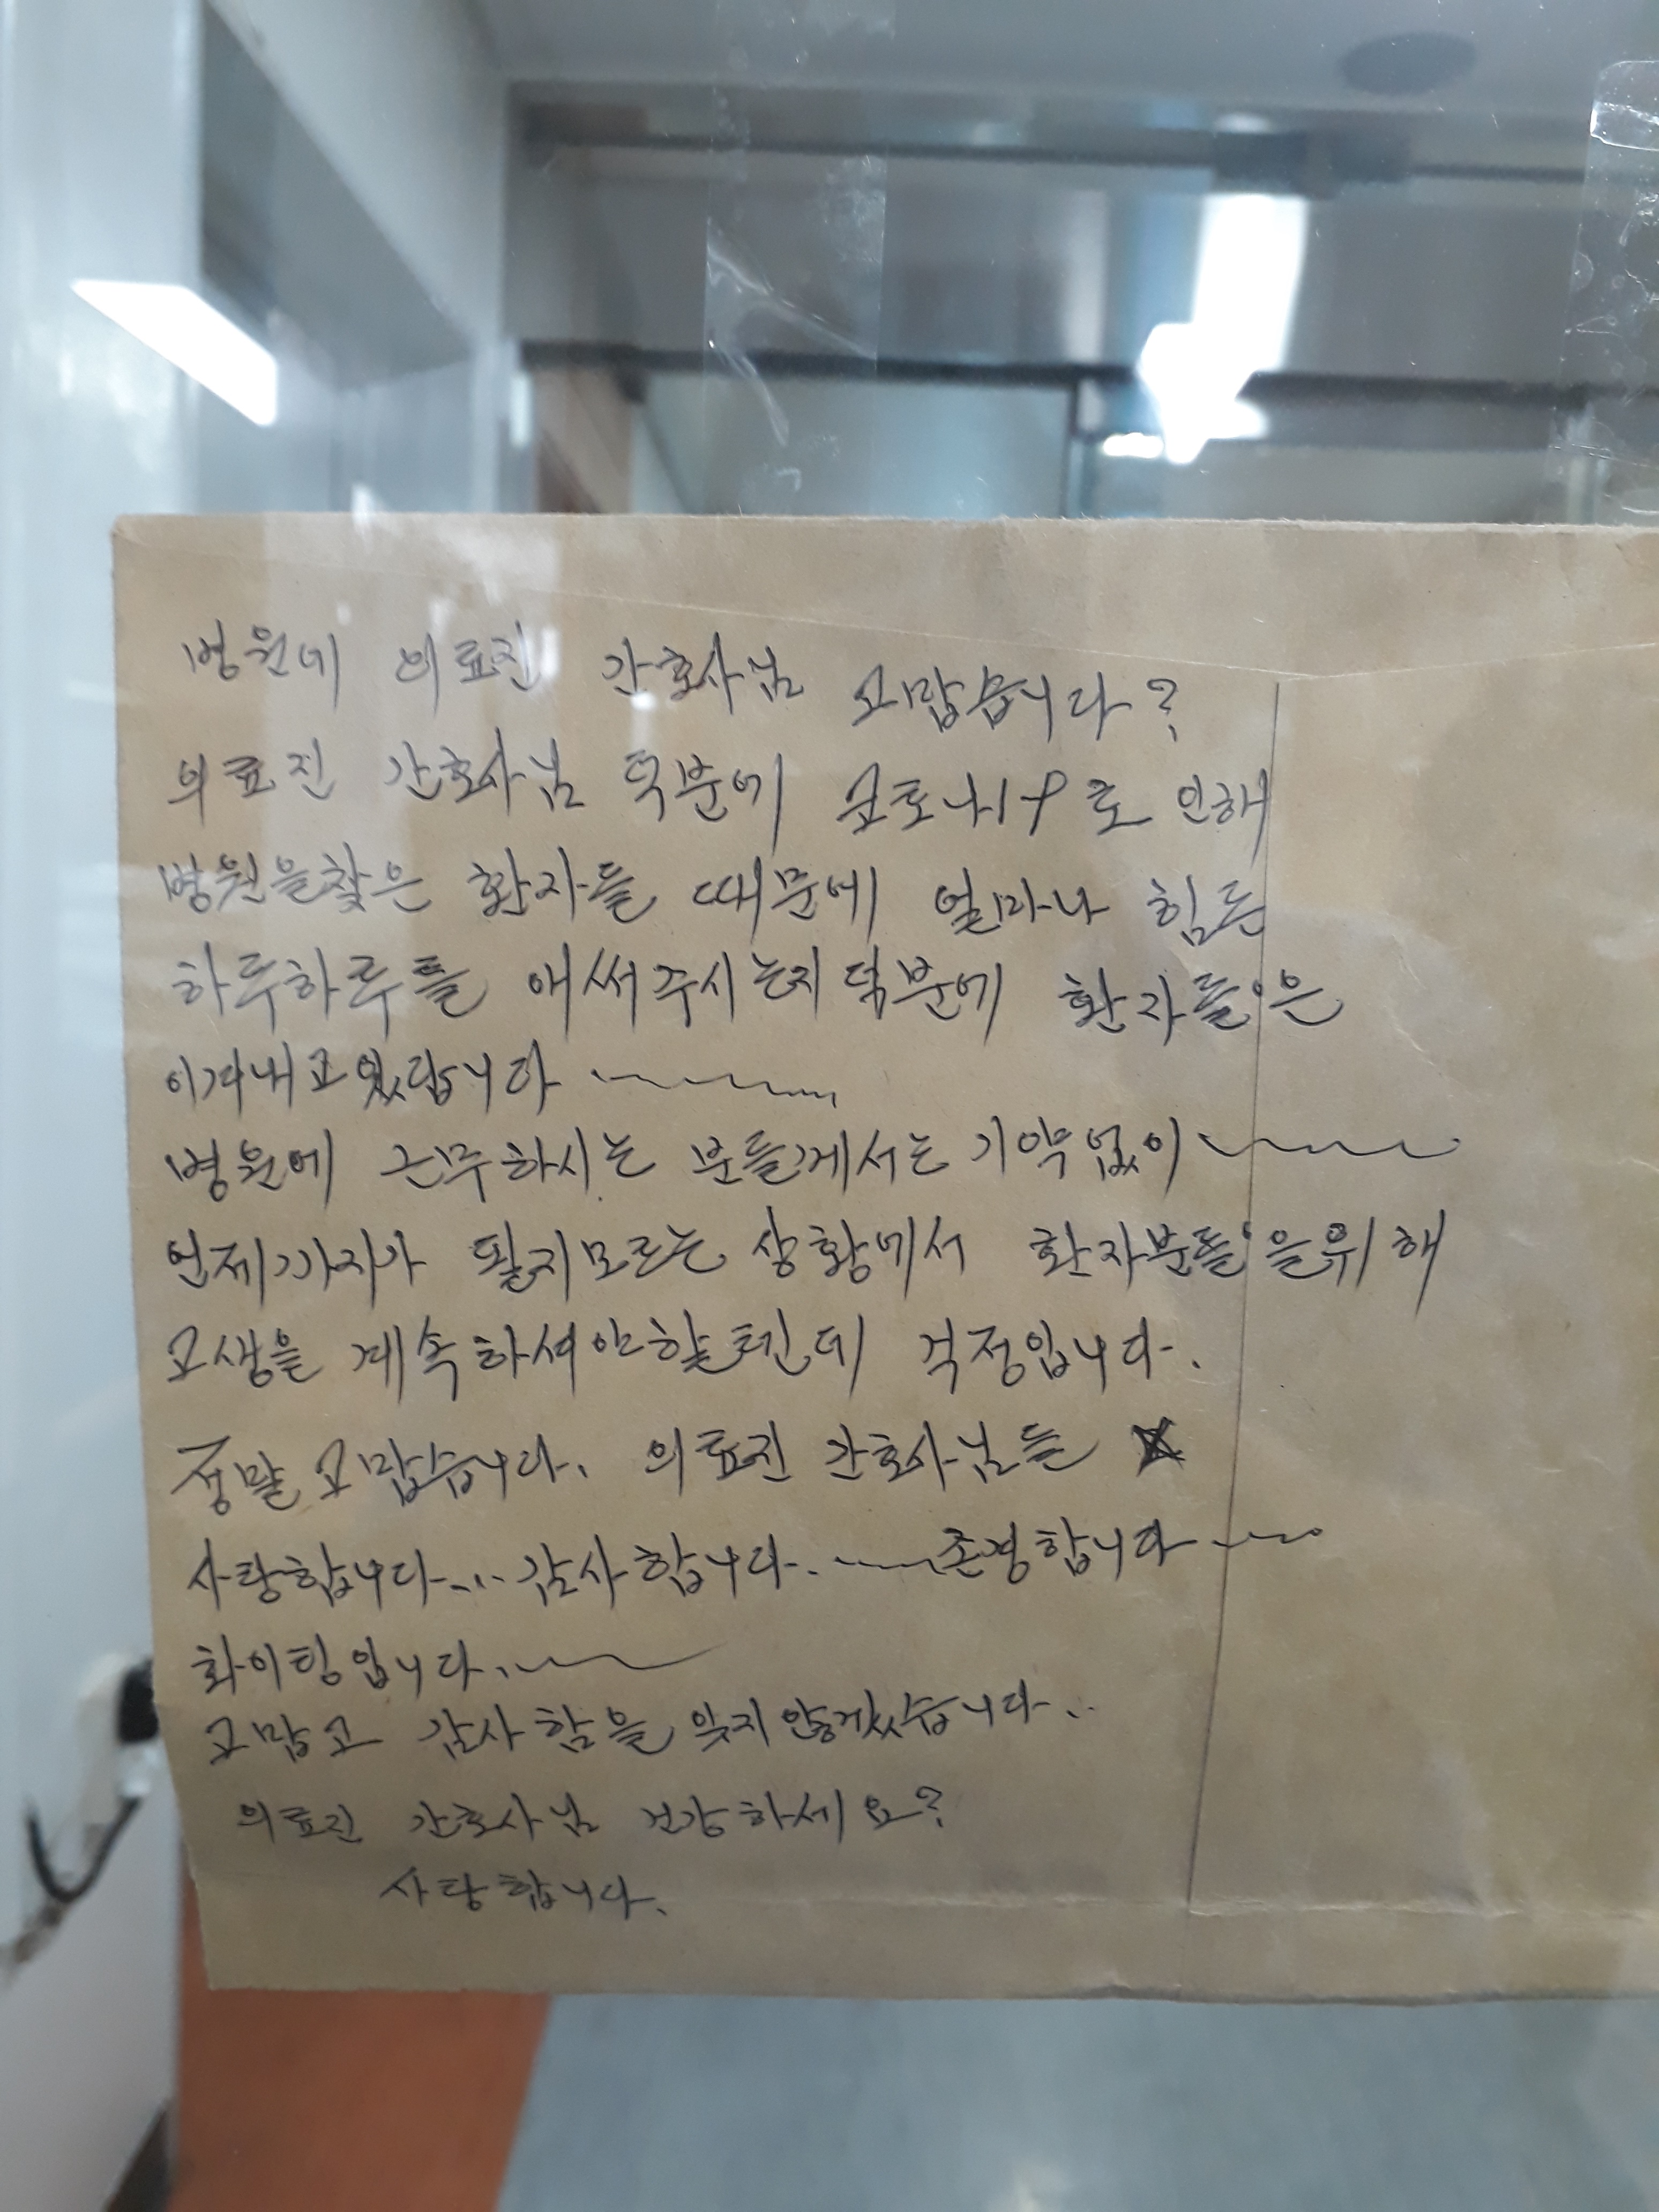 병원에 의료진 간호사님 고맙습니다?
의료진 간호사님 덕분에 코로나19로 인해
병원을찾은 환자들 때문에 얼마나 힘든
하루하루를 애써주시는지 덕분에 환자들은
이겨내고있답니다 ~~~~
병원에 근무하시는 분들께서는 기약없이~~~~
언제까지가 될지모르는 상황에서 환자분들을위해
고생을 계속하셔야할텐데 걱정입니다.
정말고맙습니다. 의료진 간호사님들
사랑합니다... 감사합니다. ~~~존경합니다~~~
화이팅입니다.~~~
고맙고 감사함을 잊지않겠습니다..
의료진 간호사님 건강하세요?
사랑합니다.